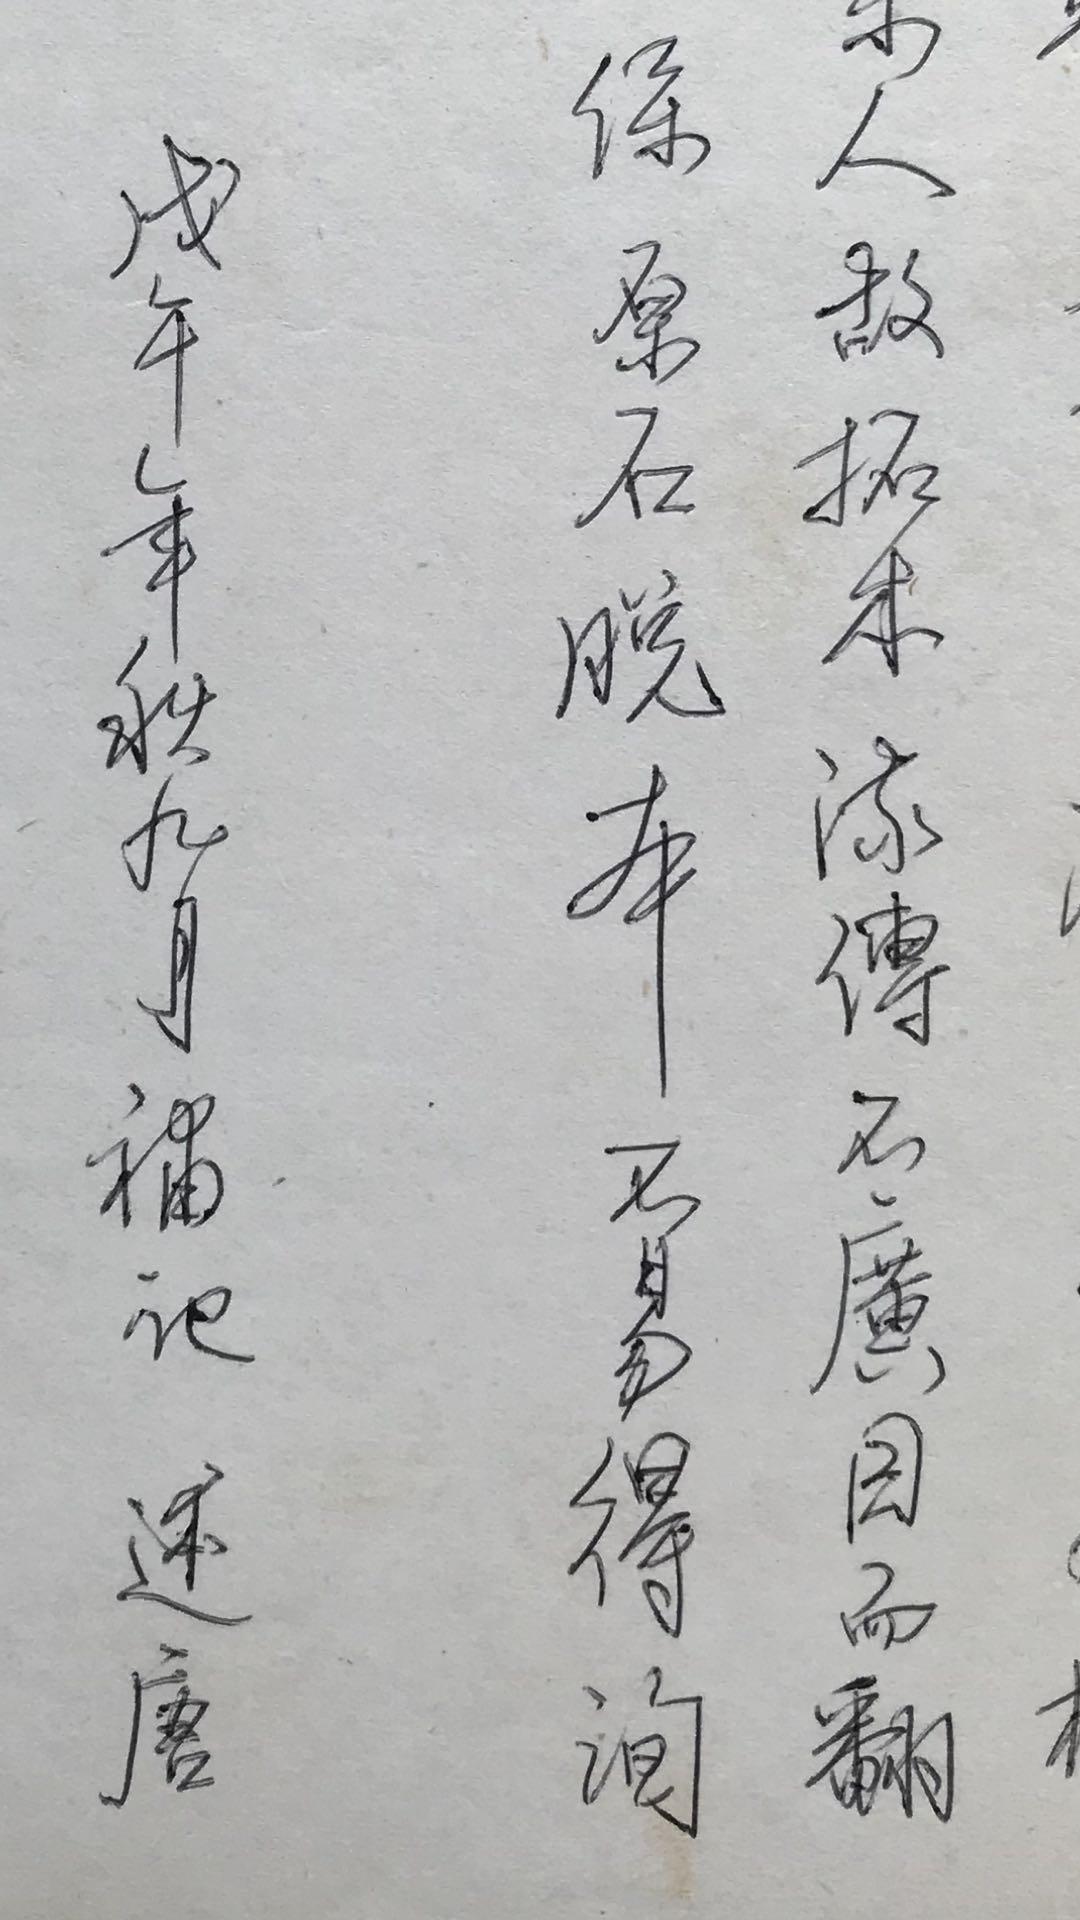 人故拓本流傳不廣因而翻
保原石脫本不易得詢
戊午年秋九月補記 述唐